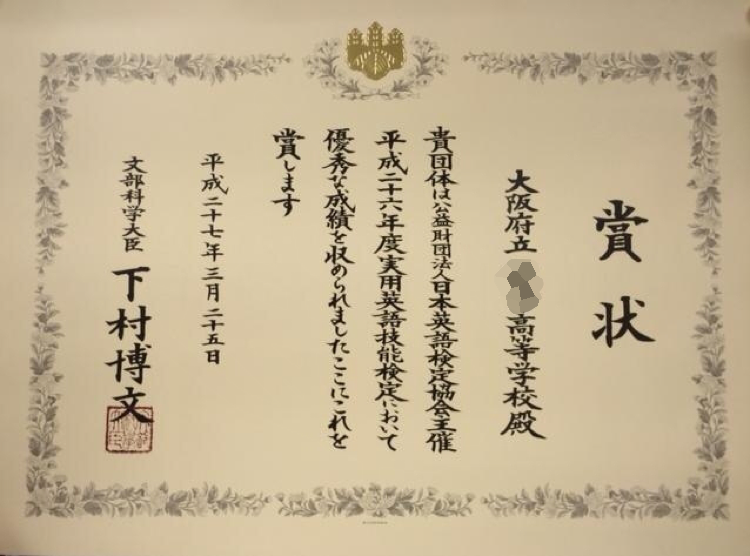 賞状
大阪府立 高等学校殿
貴団体は公益財団法人日本英語検定協会主催
平成二十六年度実用英語技能検定において
優秀な成績を収められましたここにこれを
賞します
平成二十七年三月二十五日
文部科学大臣 下村博文